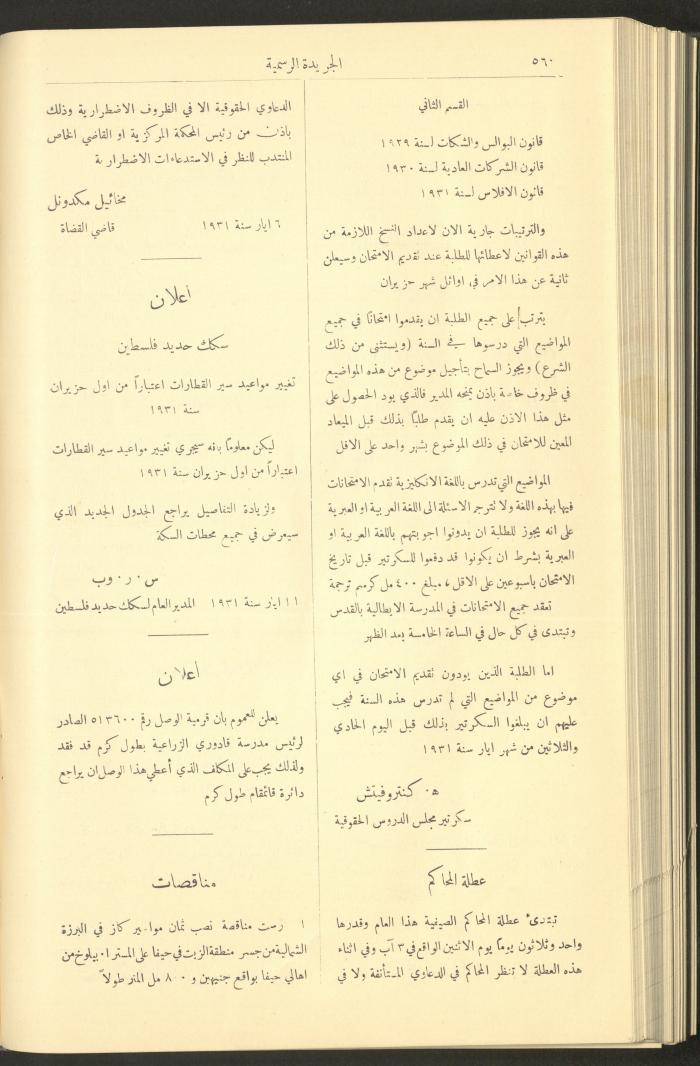 ٥٦٠
الجريدة الرسمية
القسم الثاني
قانون البوالس والشكات لسنة ١٩٢٩
قانون الشركات العادية لسنة ١٩٣٠
قانون الافلاس لسنة ١٩٣١
والترتيبات جارية الان لاعداد النسخ اللازمة من
هذه القوانين لاعطائها للطلبة عند تقديم الامتحان وسيعلن
ثانية عن هذا الامر في اوائل شهر حزيران
يترتب على جميع الطلبة ان يقدموا امتحانًا في جميع
المواضيع التي درسوها في السنة (ويستثنى من ذلك
الشرع) ويجوز السماح بتأجيل موضوع من هذه المواضيع
في ظروف خاصة باذن يمنحه المدير فالذي يود الحصول على
مثل هذا الاذن عليه ان يقدم طلبًا بذلك قبل الميعاد
المعين للامتحان في ذلك الموضوع بشهر واحد على الاقل
المواضيع التي تدرس باللغة الانكليزية تقدم الامتحانات
فيها بهذه اللغة ولا تترجم الاسئلة الى اللغة العربية او العبرية
على انه يجوز للطلبة ان يدونوا اجوبتهم باللغة العربية او
العبرية بشرط ان يكونوا قد دفعوا للسكرتير قبل تاريخ
الامتحان باسبوعين على الاقل، مبلغ ٤٠٠ مل كرسم ترجمة
تعقد جميع الامتحانات في المدرسة الايطالية بالقدس
وتبتدى في كل حال في الساعة الخامسة بعد الظهر
اما الطلبة الذين يودون تقديم الامتحان في اي
موضوع من المواضيع التي لم تدرس هذه السنة فيجب
عليهم ان يبلغوا السكرتير بذلك قبل اليوم الحادي
والثلاثين من شهر ايار سنة ١٩٣١
ه. كنتروفيتش
سكرتير مجلس الدروس الحقوقية
عطلة المحاكم
تبتدئ عطلة المحاكم الصيفية هذا العام وقدرها
واحد وثلاثون يومًا يوم الاثنين الواقع في ٣ آب وفي اثناء
هذه العطلة لا تنظر المحاكم في الدعاوي المستأنفة ولا في
الدعاوي الحقوقية الا في الظروف الاضطرارية وذلك
باذن من رئيس المحكمة المركزية او القاضي الخاص
المنتدب للنظر في الاستدعاءات الاضطرارية
مخائيل مكدونل
٦ ايار سنة ١٩٣١ قاضي القضاة
اعلان
سكك حديد فلسطين
تغيير مواعيد سير القطارات اعتبارًا من اول حزيران
سنة ١٩٣١
ليكن معلومًا بانه سيجري تغيير مواعيد سير القطارات
اعتبارًا من اول حزيران سنة ١٩٣١
ولزيادة التفاصيل يراجع الجدول الجديد الذي
سيعرض في جميع محطات السكة
س. ر. وب
١١ ايار سنة ١٩٣١ المدير العام لسكك حديد فلسطين
اعلان
يعلن للعموم بان قرمية الوصل رقم ٥١٣٦٠٠ الصادر
لرئيس مدرسة قادوري الزراعية بطول كرم قد فقد
ولذلك يجب على المكلف الذي أعطي هذا الوصل ان يراجع
دائرة قائمقام طول كرم
مناقصات
١ رست مناقصة نصب ثمان مواسير كاز في البرزة
الشمالية من جسر منطقة الزيت في حيفا على المستر ا. بيلوخ من
اهالي حيفا بواقع جنيهين و ٨٠٠ مل المتر طولاً